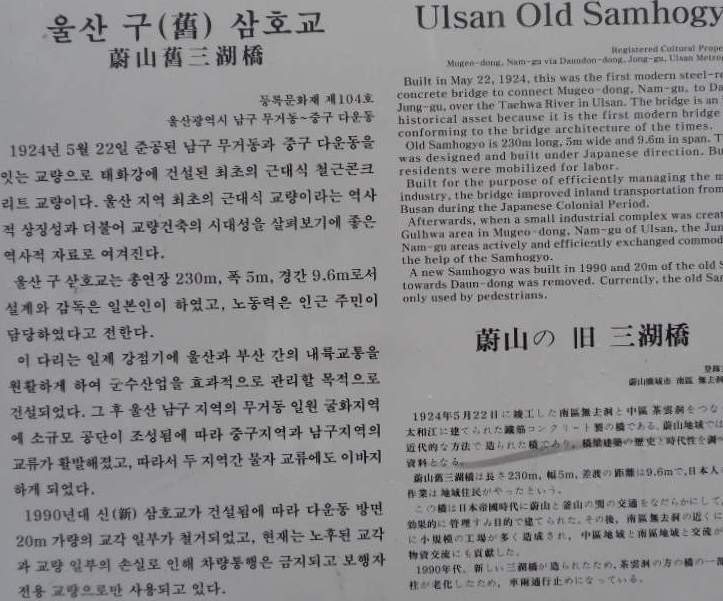 울산 구(舊) 삼호교
蔚山舊三湖橋
등록문화재 제104호
울산광역시 남구 무거동~중구 다운동
1924년 5월 22일 준공된 남구 무거동과 중구 다운동을
잇는 교량으로 태화강에 건설된 최초의 근대식 철근콘크
리트 교량이다. 울산 지역 최초의 근대식 교량이라는 역사
적 상징성과 더불어 교량건축의 시대성을 살펴보기에 좋은
역사적 자료로 여겨진다.
울산 구 삼호교는 총연장 230m, 폭 5m, 경간 9.6m로서
설계와 감독은 일본인이 하였고, 노동력은 인근 주민이
담당하였다고 전한다.
이 다리는 일제 강점기에 울산과 부산 간의 내륙교통을
원활하게 하여 군수산업을 효과적으로 관리할 목적으로
건설되었다. 그 후 울산 남구 지역의 무거동 일원 굴화지역
에 소규모 공단이 조성됨에 따라 중구지역과 남구지역의
교류가 활발해졌고, 따라서 두 지역간 물자 교류에도 이바지
하게 되었다.
1990년대 신(新) 삼호교가 건설됨에 따라 다운동 방면
20m 가량의 교각 일부가 철거되었고, 현재는 노후된 교각
과 교량 일부의 손실로 인해 차량통행은 금지되고 보행자
전용 교량으로만 사용되고 있다.
Ulsan Old Samhogy
Registered Cultural Prope
Mugeo-dong, Nam-gu via Daundon-dong, Jong-gu, Ulsan Metrop
Built in May 22, 1924, this was the first modern steel-re
concrete bridge to connect Mugeo-dong, Nam-gu, to Da
Jung-gu, over the Taehwa River in Ulsan. The bridge is an
historical asset because it is the first modern bridge
conforming to the bridge architecture of the times.
Old Samhogyo is 230m long, 5m wide and 9.6m in span. T
was designed and built under Japanese direction. Bu
residents were mobilized for labor.
Built for the purpose of efficiently managing the m
industry, the bridge improved inland transportation from
Busan during the Japanese Colonial Period.
Afterwards, when a small industrial complex was crea
Gulhwa area in Mugeo-dong, Nam-gu of Ulsan, the Jun
Nam-gu areas actively and efficiently exchanged commod
the help of the Samhogyo.
A new Samhogyo was built in 1990 and 20m of the old S
towards Daun-dong was removed. Currently, the old Sam
only used by pedestrians.
蔚山の 旧 三湖橋
登錄
蔚山廣域市 南區 無去洞
1924年5月22日に竣工した南區無去洞と中區 茶雲洞をつな
太和江に建てられた鐵筋コンクリート製の橋である。蔚山地域では
近代的な方法で 造られた橋であり、橋梁建築の歷史と時代性を調べ
資料となる。
蔚山舊三湖橋は長さ230m, 幅5m, 差渡の距離は9.6mで,日本人
作業は地域住民がやったという。
この橋は日本帝國時代に蔚山と釜山の間の交通をなだらかにして,
効果的に管理すム目的で建てられた。その後, 南區無去洞の近くに
に小規模の工場が多く造成され, 中區地域と南區地域と交流が
物資交流にも貢獻した。
1990年代, 新しい三湖橋が造られたため,茶雲洞の方の橋の一部
柱が老化したため, 車兩通行止めになっている。